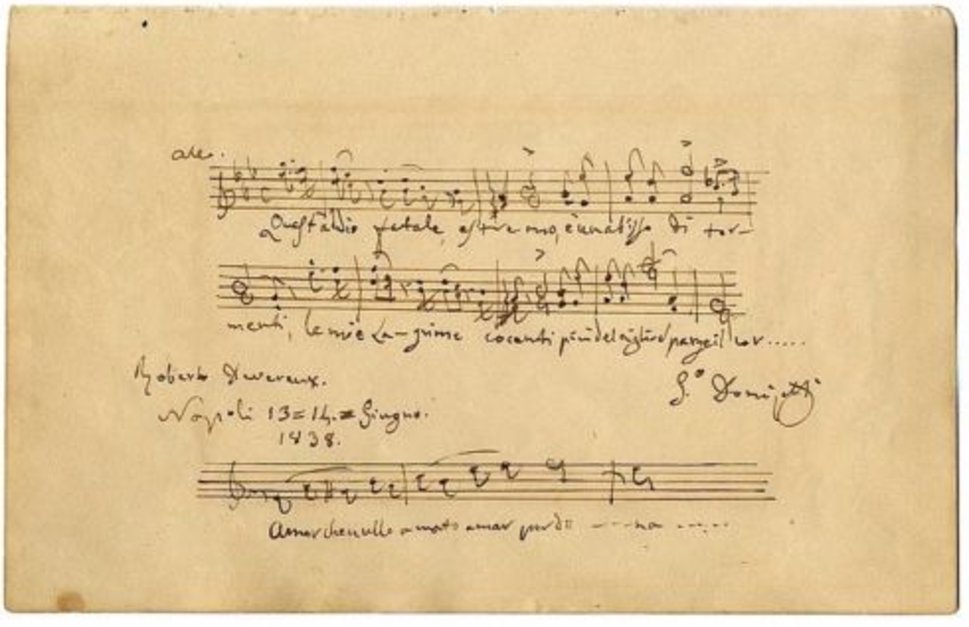 all.
Quest'addio fatale, estremo, è un abisso di tor-
menti, le mie la-grime cocenti più del ciglio sparge il cor.....
Roberto Devereux.
G.º Donizetti
Napoli 13=14.= Giugno.
1838.
Amor che nullo amato amar perdo ----na -----